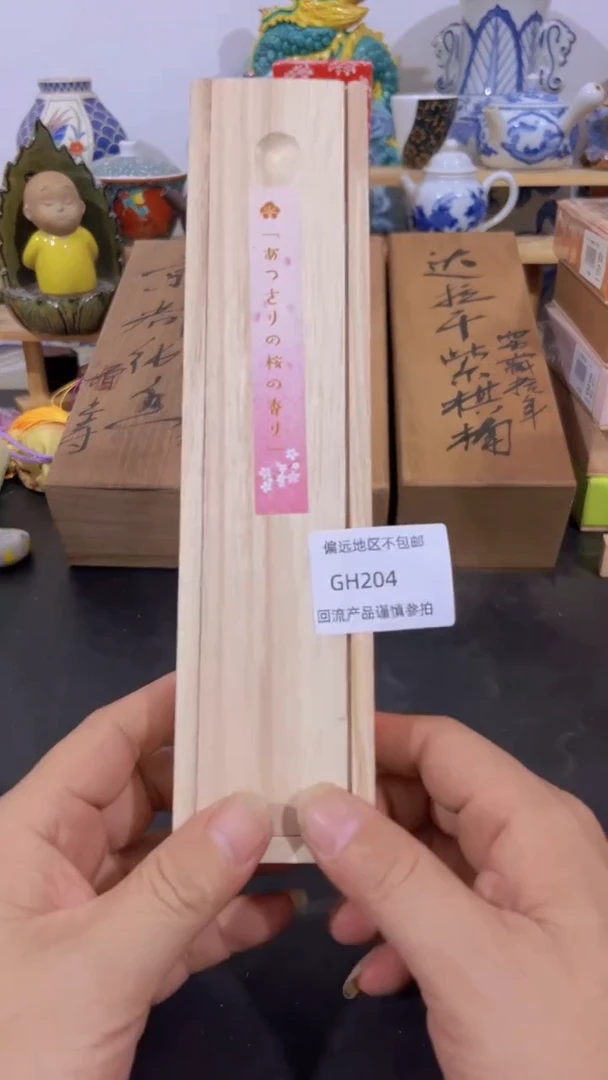 「あつさりの桜の香り」
偏远地区不包邮
GH204
回流产品谨慎参拍
达拉干紫棋楠
窖藏拾年